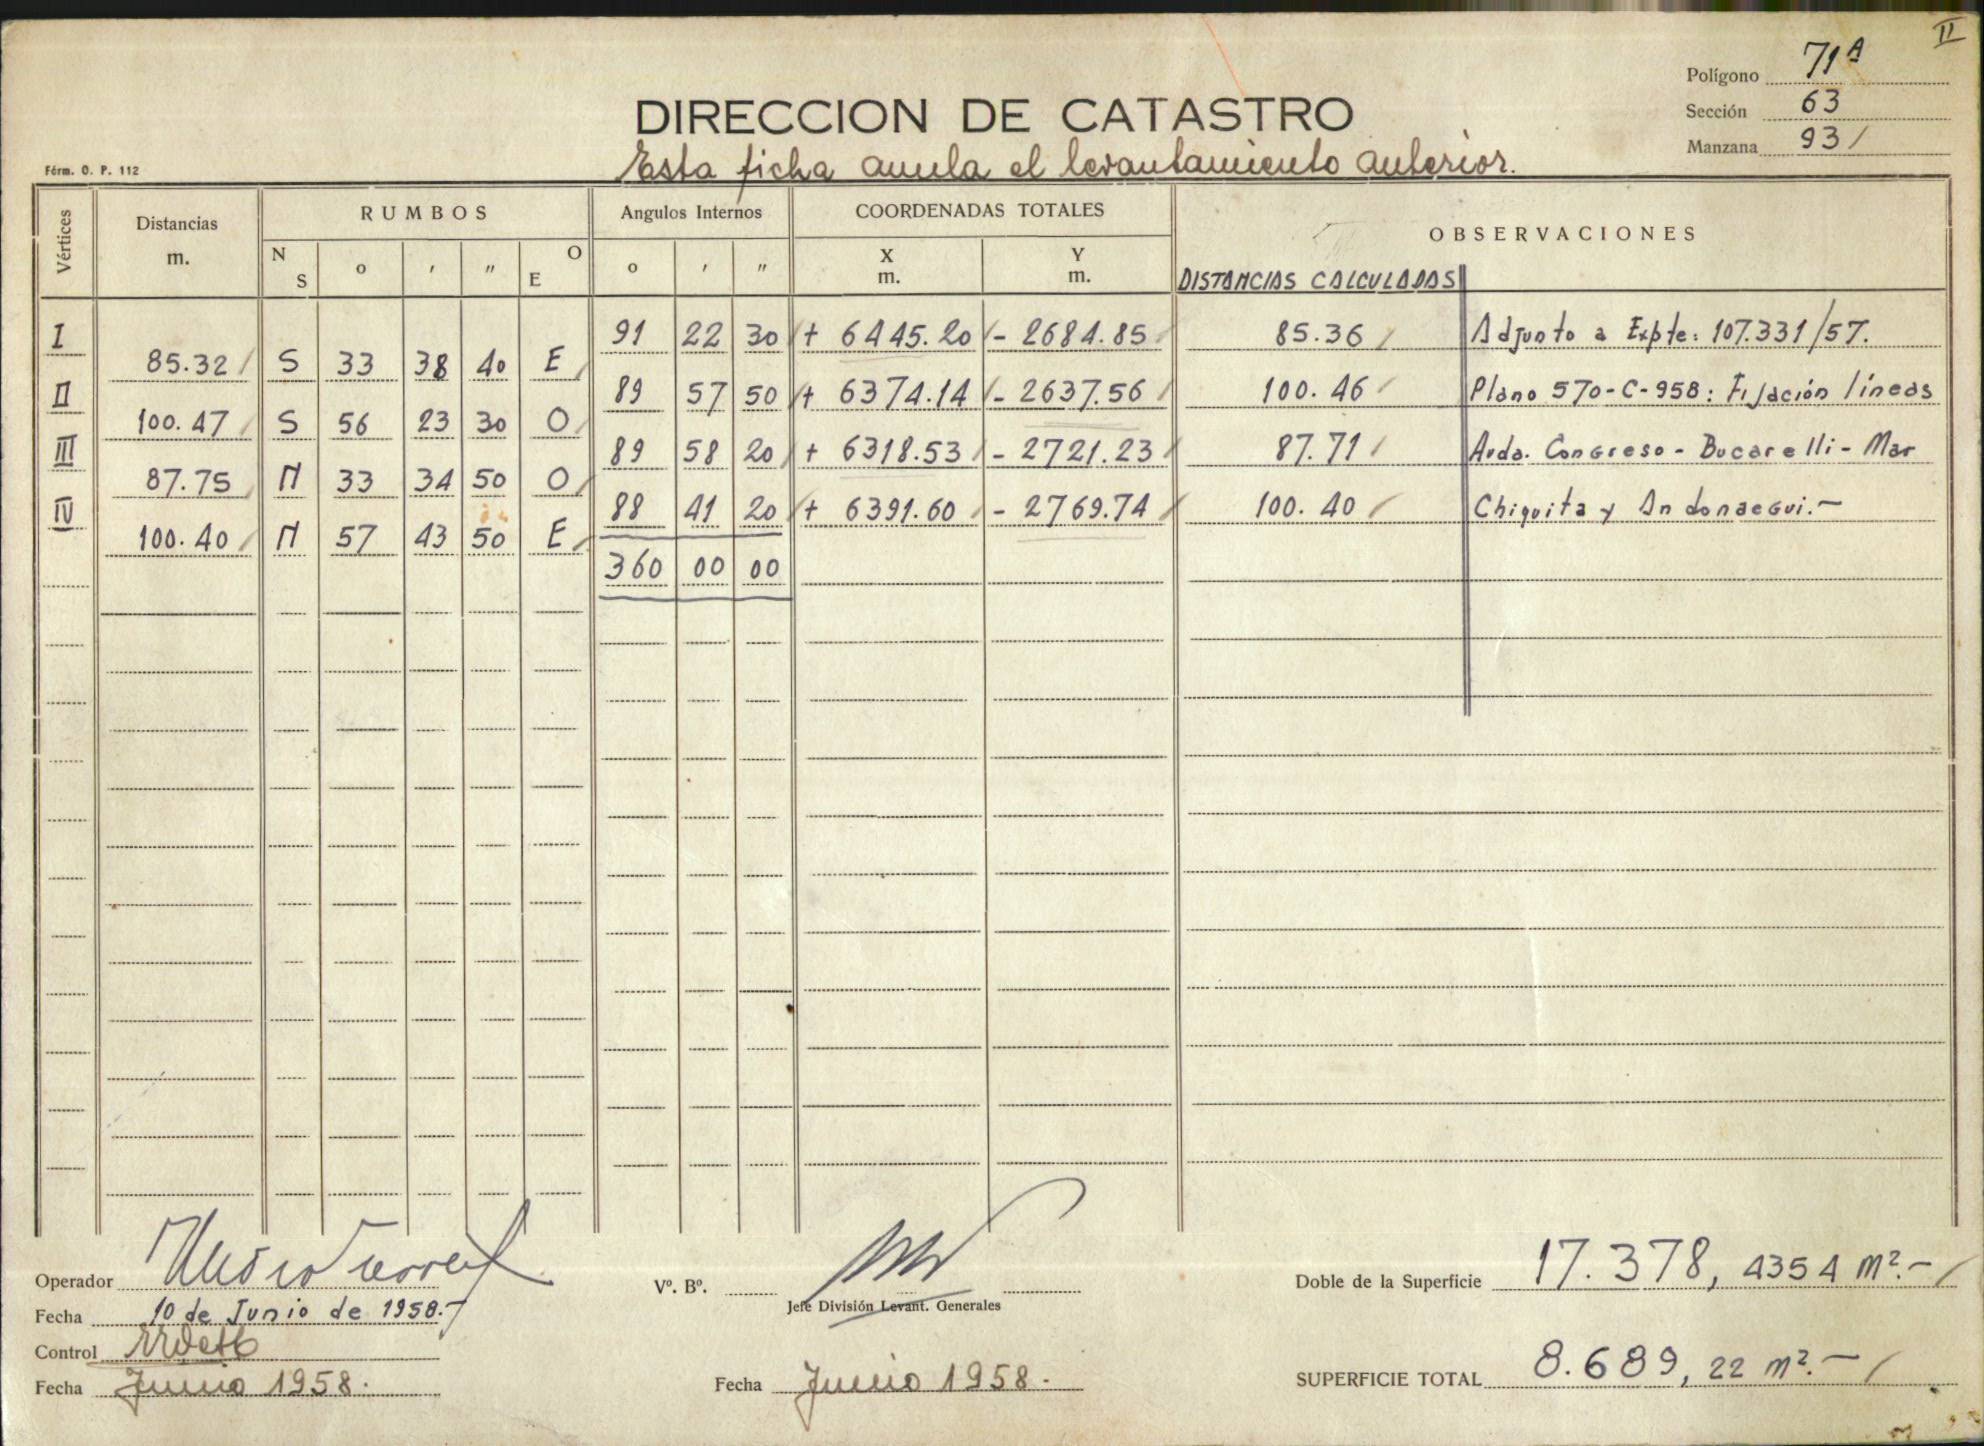 II
Polígono 71A
Sección 63
Manzana 93
DIRECCION DE CATASTRO
Esta ficha anula el levantamiento anterior.
Fórm. O. P. 112
Vértices Distancias m. RUMBOS Angulos Internos COORDENADAS TOTALES OBSERVACIONES
N S o ' " O E o ' " X m. Y m. DISTANCIAS CALCULADAS
I 91 22 30 + 6445.20 - 2684.85 85.36 Adjunto a Expte: 107.331/57.
85.32 S 33 38 40 E
II 89 57 50 + 6374.14 - 2637.56 100.46 Plano 570-C-958: Fijación líneas
100.47 S 56 23 30 O
III 89 58 20 + 6318.53 - 2721.23 87.71 Avda. Congreso - Bucarelli - Mar
87.75 N 33 34 50 O
IV 88 41 20 + 6391.60 - 2769.74 100.40 Chiquita y Andonaegui.-
100.40 N 57 43 50 E
360 00 00
Operador
Fecha 10 de Junio de 1958.-
Control
Fecha Junio 1958.
Vº. Bº.
Jefe División Levant. Generales
Fecha Junio 1958.
Doble de la Superficie 17.378,4354 m².-
SUPERFICIE TOTAL 8.689,22 m².-